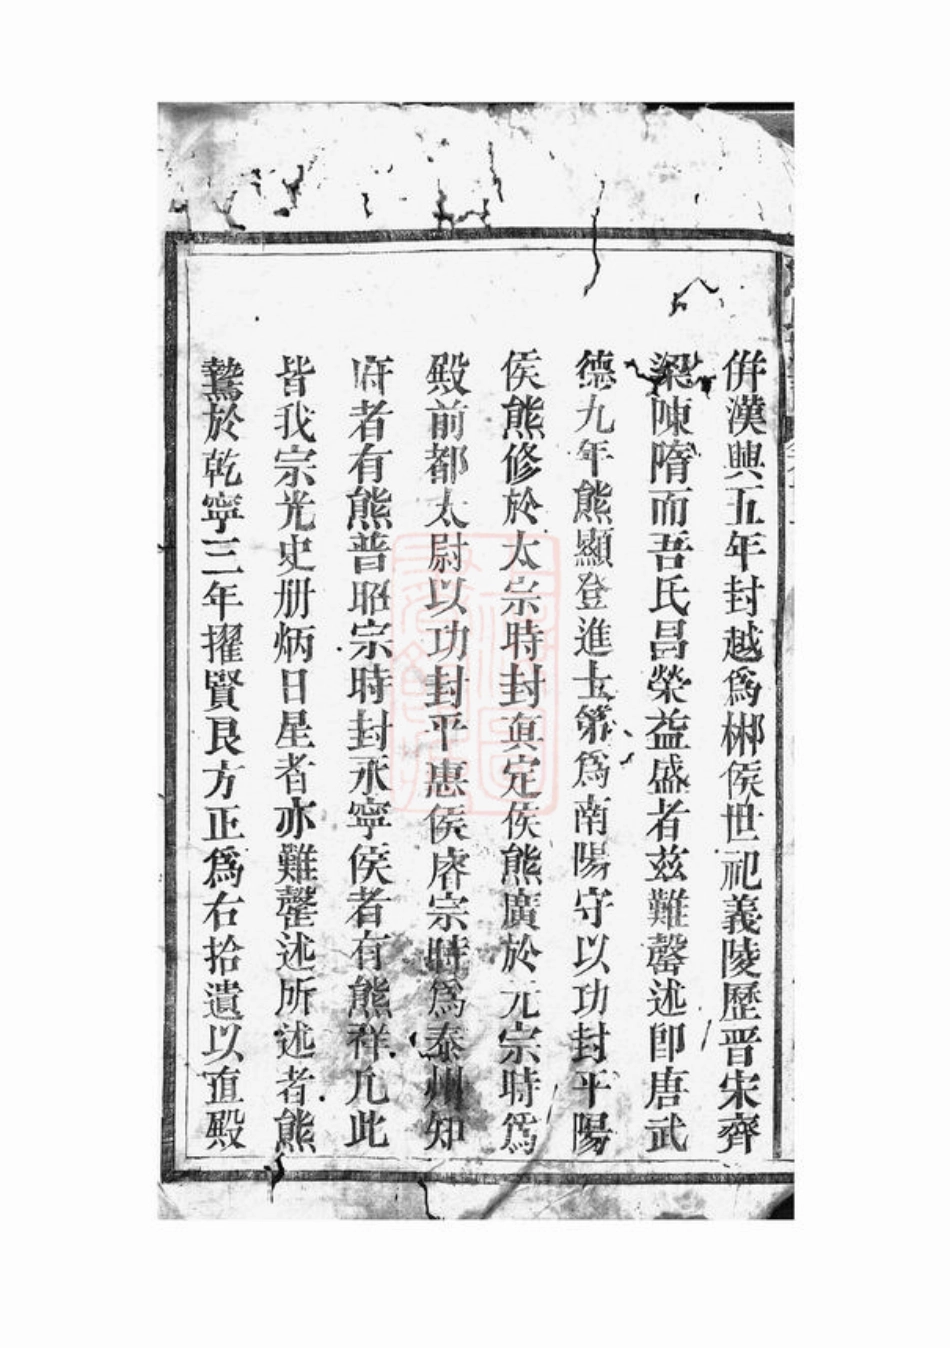 倂漢興五年封越爲郴侯世祀義陵歷晋宋齊
梁陳隋而吾氏昌榮益盛者兹難罄述卽唐武
德九年熊顯登進士第爲南陽守以功封平陽
侯熊修於太宗時封眞定侯熊廣於元宗時爲
殿前都太尉以功封平惠侯睿宗時爲泰州知
府者有熊普昭宗時封永寧侯者有熊祥凡此
皆我宗光史册炳日星者亦難罄述所述者熊
鷟於乾寧三年擢賢良方正爲右拾遺以直殿